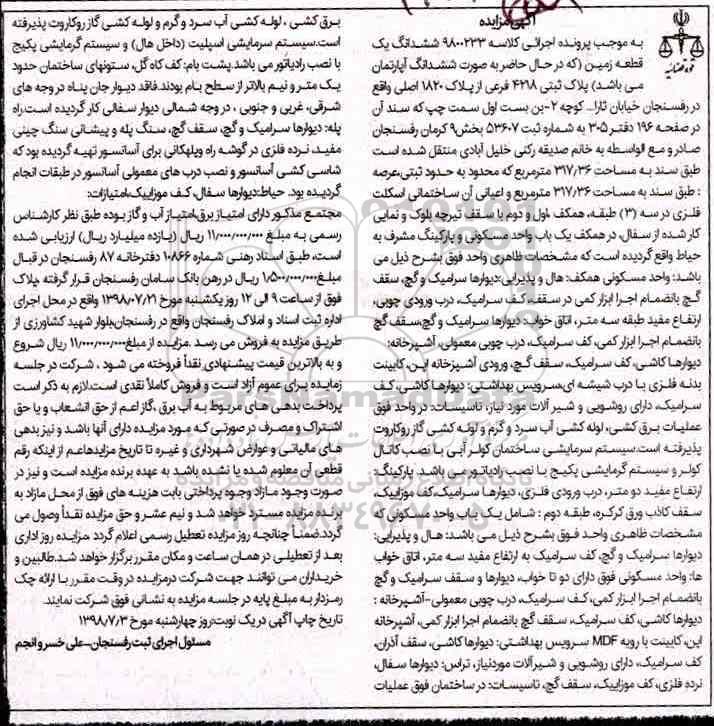 آگهی مزایده
قوه قضائیه
به موجب پرونده اجرائی کلاسه ۹۸۰۰۲۳۳ ششدانگ یک
قطعه زمین (که در حال حاضر به صورت ششدانگ آپارتمان
می باشد) پلاک ثبتی ۴۲۱۸ فرعی از پلاک ۱۸۲۰ اصلی واقع
در رفسنجان خیابان ثارا... کوچه ۲-بن بست اول سمت چپ که سند آن
در صفحه ۱۹۶ دفتر ۳۰۵ به شماره ثبت ۵۳۶۰۷ بخش۹ کرمان رفسنجان
صادر و مع الواسطه به خانم صدیقه رکنی خلیل آبادی منتقل شده است
طبق سند به مساحت ۳۱۷/۳۶ مترمربع که محدود به حدود ثبتی،عرصه
: طبق سند به مساحت ۳۱۷/۳۶ مترمربع و اعیانی آن ساختمانی اسکلت
فلزی در سه (۳) طبقه، همکف ،اول و دوم با سقف تیرچه بلوک و نمایی
کار شده از سفال، در همکف یک باب واحد مسکونی و پارکینگ مشرف به
حیاط واقع گردیده است که مشخصات ظاهری واحد فوق بشرح ذیل می
باشد: واحد مسکونی همکف: هال و پذیرایی:دیوارها سرامیک و گچ، سقف
گچ بانضمام اجرا ابزار کمی در سقف، کف سرامیک، درب ورودی چوبی،
ارتفاع مفید طبقه سه متر، اتاق خواب: دیوارها سرامیک و گچ،سقف گچ
بانضمام اجرا ابزار کمی، کف سرامیک، درب چوبی معمولی، آشپزخانه:
دیوارها کاشی، کف سرامیک، سقف گچ، ورودی آشپزخانه اپن، کابینت
بدنه فلزی با درب شیشه ای،سرویس بهداشتی: دیوارها کاشی، کف
سرامیک، دارای روشویی و شیر آلات مورد نیاز، تاسیسات: در واحد فوق
عملیات برق کشی، لوله کشی آب سرد و گرم و لوله کشی گاز روکاروت
پذیرفته است.سیستم سرمایشی ساختمان کولر آبی با نصب کانال
کولر و سیستم گرمایشی پکیج با نصب رادیاتور می باشد. پارکینگ:
ارتفاع مفید دو متر، درب ورودی فلزی، دیوارها سرامیک،کف موزاییک،
سقف کاذب ورق کرکره، طبقه دوم : شامل یک باب واحد مسکونی که
مشخصات ظاهری واحد فوق بشرح ذیل می باشد: هال و پذیرایی:
دیوارها سرامیک و گچ، کف سرامیک به ارتفاع مفید سه متر، اتاق خواب
ها: واحد مسکونی فوق دارای دو تا خواب، دیوارها و سقف سرامیک و گچ
بانضمام اجرا ابزار کمی، کف سرامیک، درب چوبی معمولی-آشپزخانه :
دیوارها کاشی، کف سرامیک، سقف گچ بانضمام اجرا ابزار کمی، آشپزخانه
اپن، کابینت با رویه MDF سرویس بهداشتی: دیوارها کاشی، سقف آذران،
کف سرامیک، دارای روشویی و شیرآلات موردنیاز، تراس: دیوارها سفال،
نرده فلزی، کف موزاییک، سقف گچ، تاسیسات: در ساختمان فوق عملیات
برق کشی ، لوله کشی آب سرد و گرم و لوله کشی گاز روکاروت پذیرفته
است.سیستم سرمایشی اسپلیت (داخل هال) و سیستم گرمایشی پکیج
با نصب رادیاتور می باشد. پشت بام: کف کاه گل، ستونهای ساختمان حدود
یک متر و نیم بالاتر از سطح بام بودند.فاقد دیوار جان پناه در وجه های
شرقی، غربی و جنوبی ، در وجه شمالی دیوار سفالی کار گردیده است.راه
پله: دیوارها سرامیک و گچ، سقف گچ، سنگ پله و پیشانی سنگ چینی
مفید، نرده فلزی در گوشه راه وپلهکانی برای آسانسور تهیه گردیده بود که
شاسی کشی آسانسور و نصب درب های معمولی آسانسور در طبقات انجام
گردیده بود. حیاط:دیوارها سفال، کف موزاییک،امتیازات:
مجتمع مذکور دارای امتیاز برق،امتیاز آب و گاز بوده طبق نظر کارشناس
رسمی به مبلغ ۱۱/۰۰۰/۰۰۰/۰۰۰ ریال (یازده میلیارد ریال) ارزیابی شده
است، طبق اسناد رهنی شماره ۱۰۸۶۶ دفترخانه ۸۷ رفسنجان در قبال
مبلغ۱/۵۰۰/۰۰۰/۰۰۰ ریال در رهن بانک سامان رفسنجان قرار گرفته .پلاک
فوق از ساعت ۹ الی ۱۲ روز یکشنبه مورخ ۱۳۹۸/۰۷/۲۱ واقع در محل اجرای
اداره ثبت اسناد و املاک رفسنجان واقع در رفسنجان،بلوار شهید کشاورزی از
طریق مزایده به فروش می رسد .مزایده از مبلغ۱۱/۰۰۰/۰۰۰/۰۰۰ ریال شروع
و به بالاترین قیمت پیشنهادی نقدأ فروخته می شود ، شرکت در جلسه
زمایده برای عموم آزاد است و فروش کاملأ نقدی است.لازم به ذکر است
پرداخت بدهی های مربوط به آب برق ،گاز اعم از حق انشعاب و یا حق
اشتراک و مصرف در صورتی که مورد مزایده دارای آنها باشد و نیز بدهی
های مالیاتی و عوارض شهرداری و غیره تا تاریخ مزایدهاعم از اینکه رقم
قطعی آن معلوم شده یا نشده باشد به عهده برنده مزایده است و نیز در
صورت وجود مازاد وجوه پرداختی بابت هزینه های فوق از محل مازاد به
برنده مزایده مسترد خواهد شد و نیم عشر و حق مزایده نقدأ وصول می
گردد.ضمنأ چنانچه روز مزایده تعطیل رسمی اعلام گردد ،مزایده روز اداری
بعد از تعطیلی در همان ساعت و مکان مقرر برگزار خواهد شد.طالبین و
خریداران می توانند جهت شرکت درمزایده در وقت مقرر با ارائه چک
رمزدار به مبلغ پایه در جلسه مزایده به نشانی فوق شرکت نمایند.
تاریخ چاپ آگهی در یک نوبت:روز چهارشنبه مورخ ۱۳۹۸/۷/۳
مسئول اجرای ثبت رفسنجان-علی خسروانجم
ParsNamadData
پایگاه اطلاع رسانی مناقصه و مزایده
۰۲۱-۸۸۳۴۹۶۷۰-۵